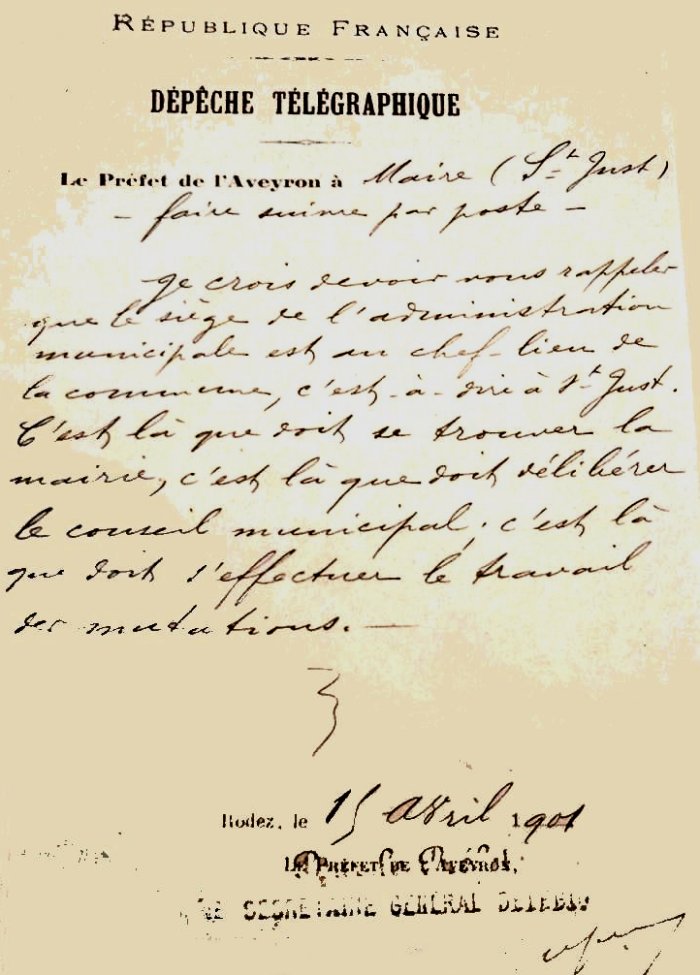 RÉPUBLIQUE FRANÇAISE
DÉPÊCHE TÉLÉGRAPHIQUE
Le Préfet de l'Aveyron à Maire (St Just)
- faire suivre par poste -
Je crois devoir vous rappeler
que le siège de l'administration
municipale est au chef-lieu de
la commune, c'est-à-dire à St Just.
C'est là que doit se trouver la
mairie, c'est là que doit délibérer
le conseil municipal; c'est là
que doit s'effectuer le travail
des mutations. —
Rodez, le 15 avril 1901
LE PRÉFET DE L'AVEYRON,
SECRÉTAIRE GÉNÉRAL